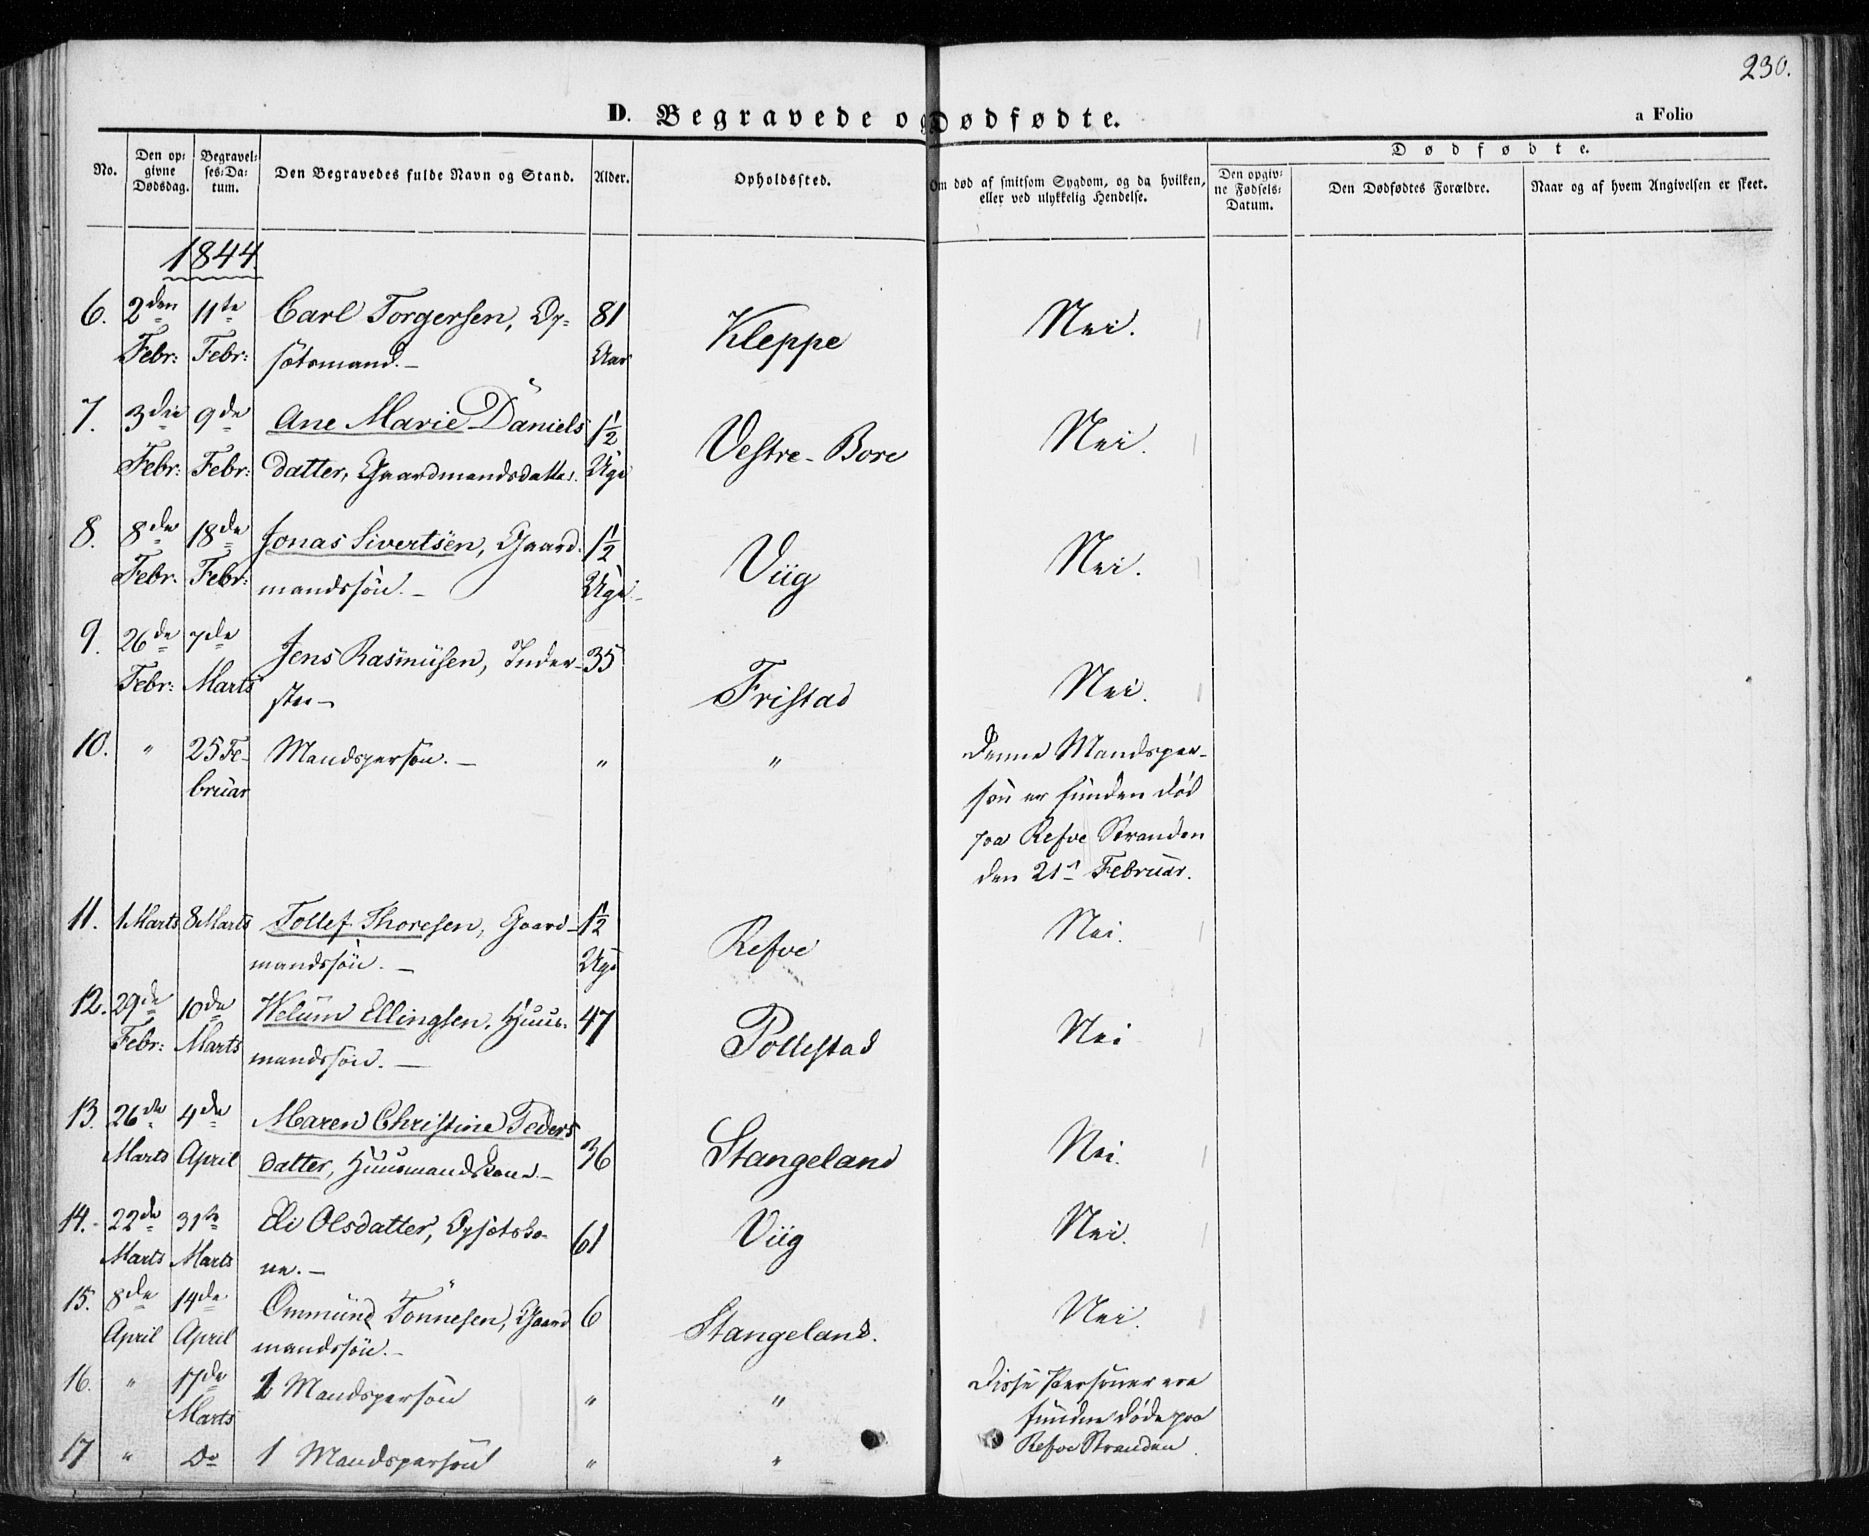 230.
D. Begravede og Dødfødte.
a Folio
No.
Den opgivne Dødsdag.
Begravelses-Datum.
Den Begravedes fulde Navn og Stand.
Alder.
Opholdssted.
Om død af smitsom Sygdom, og da hvilken, eller ved ulykkelig Hendelse.
Dødfødte.
Den opgivne Fødsels-Datum.
Den Dødfødtes Forældre.
Naar og af hvem Angivelsen er skeet.
1844
6. 2den 11te Carl Torgersen, Op- 81 Kleppe Nei.
Febr: Febr: sætsmand.- Aar
7. 3die 9de Ane Marie Daniels 1½ Vestre-Bore Nei.
Febr: Febr: datter, Gaardmandsdatter. Uge
8. 8de 18de Jonas Sivertsen, Gaard- 1½ Viig Nei.
Febr. Febr: mandssøn.- Uge.-
9. 26de 7de Jens Rasmusen, Inder- 35 Fristad Nei.
Febr: Marts ster-
10. " 25 Fe- Mandsperson.- " " Denne Mandsper-
bruar son er funden død
paa Refve Stranden
den 21de Februar.
11. 1 Marts 8 Marts Tollef Thoresen, Gaard- 1½ Refve Nei.
mandssøn.- Uge
12. 29de 10de Welum Ellingsen, Huus- 47 Pollestad Nei
Febr: Marts mandssøn.-
13. 26de 4de Maren Christine Peders 36 Stangeland Nei.
Marts April datter, Huusmandskone.-
14. 22de 31te Eli Olsdatter, Opsætsko- 61 Viig Nei.
Marts Marts ne.-
15. 8de 14de Ommund Tønnesen, Gaard 6 Stangeland. Nei.
April April mandssøn.-
16. " 17de 1 Mandsperson " " Disse Personer ere
Marts fundne døde paa
17 " Do 1 Mandsperson " " Refve Stranden.